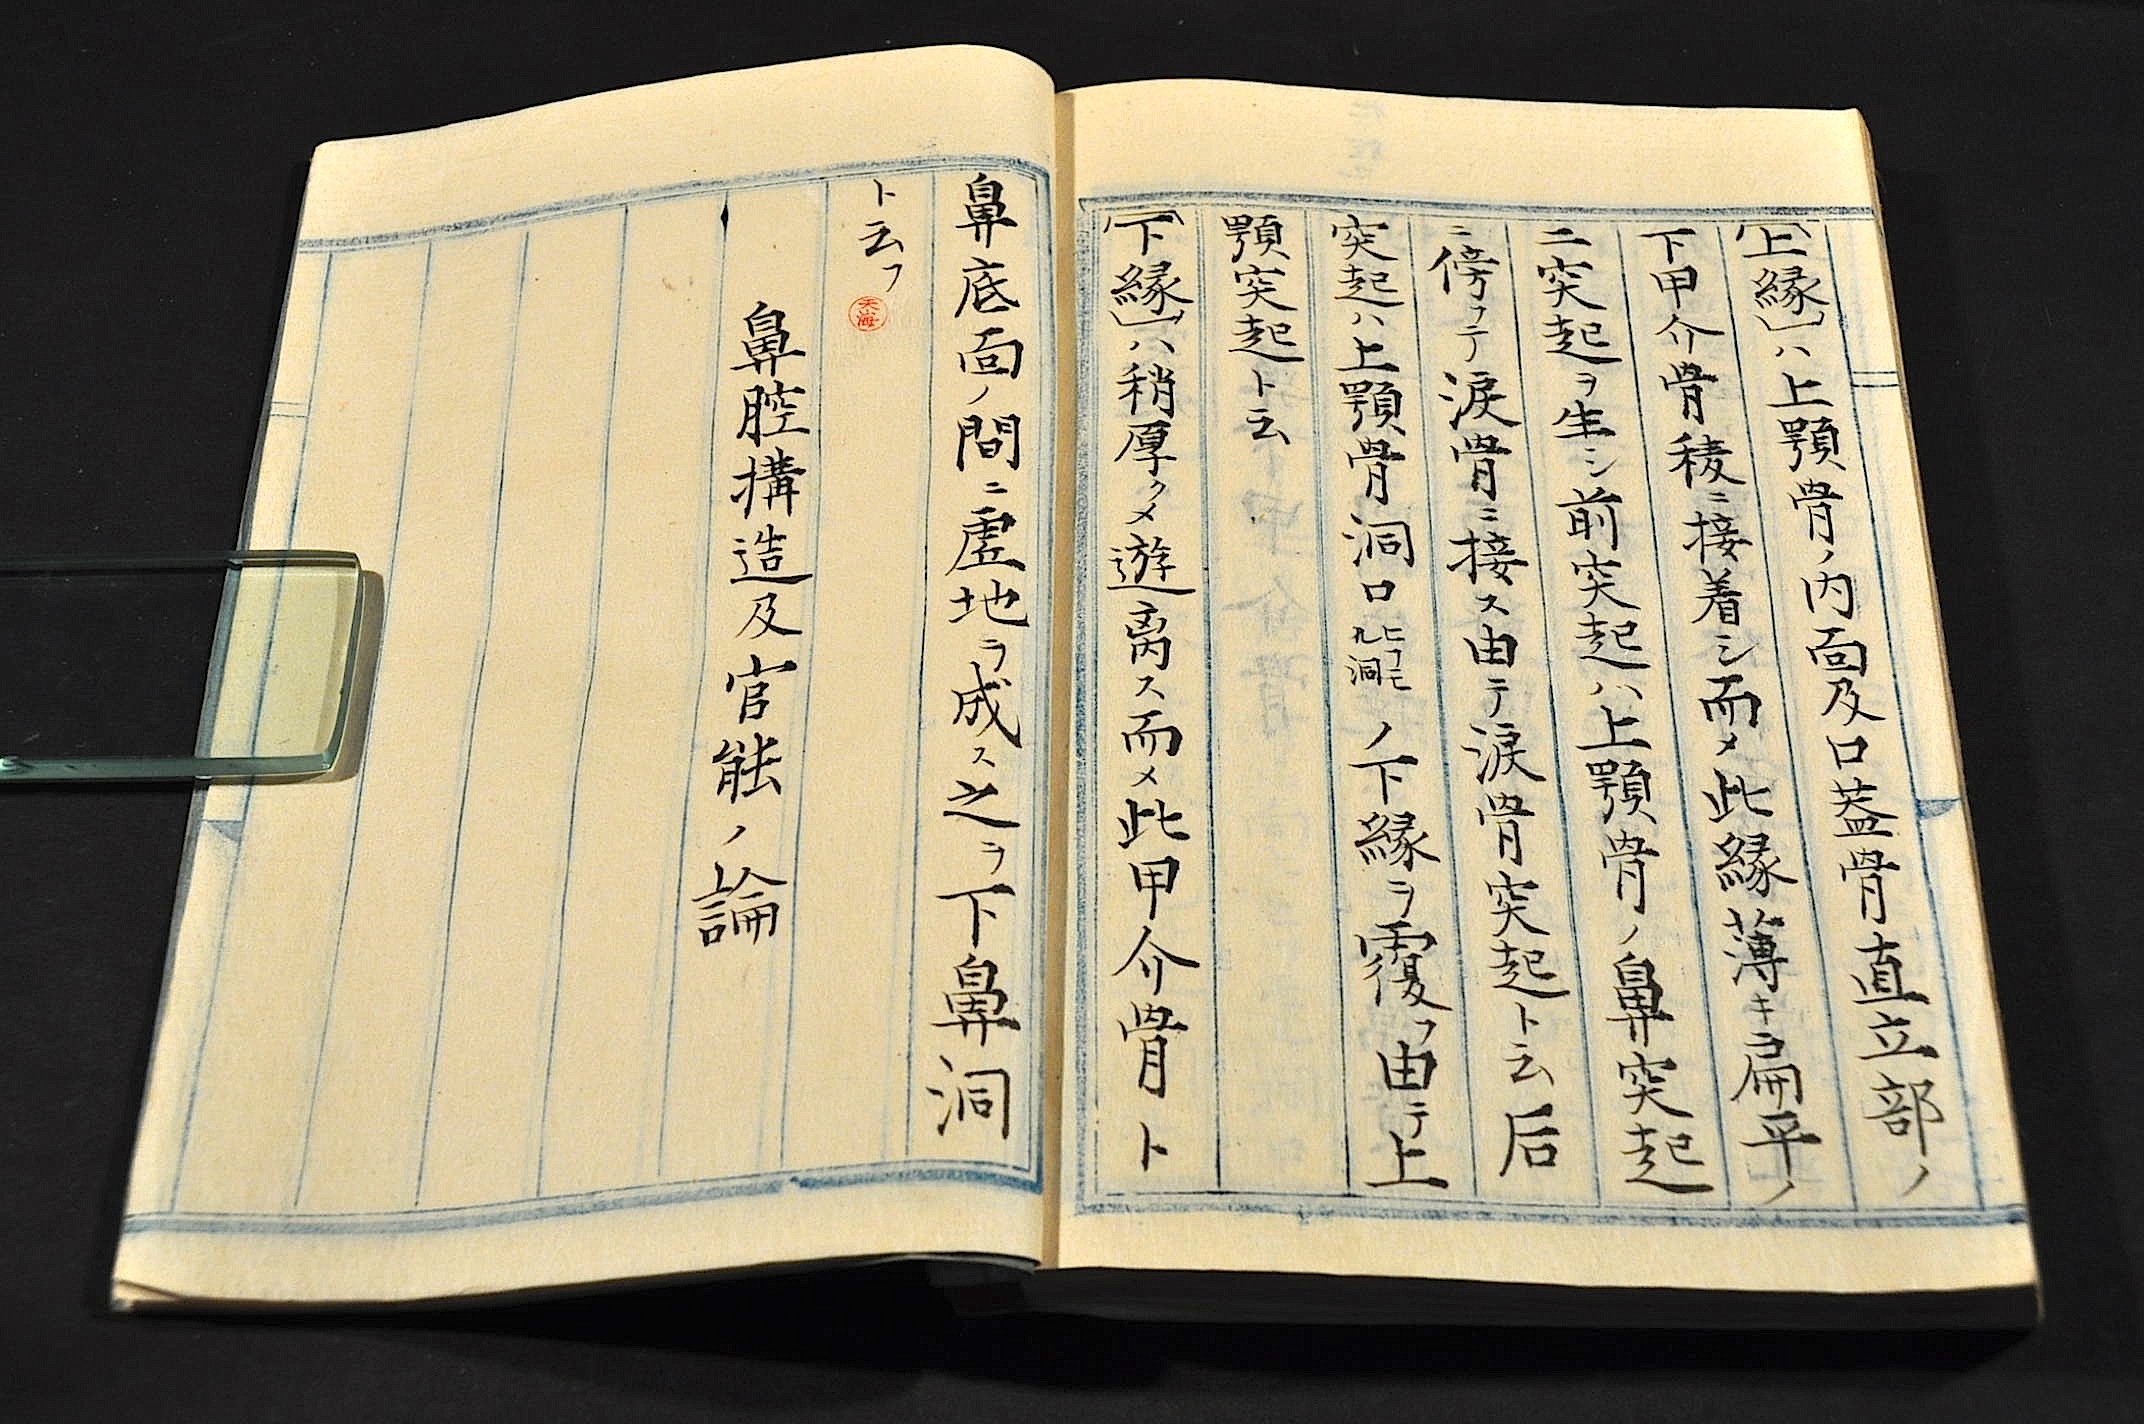 「上縁」ハ上顎骨ノ内面及口蓋骨直立部ノ
下甲介骨稜ニ接着シ而メ此縁薄キヿ扁平ノ
二突起ヲ生シ前突起ハ上顎骨ノ鼻突起
ニ傍フテ涙骨ニ接ス由テ涙骨突起ト云后
突起ハ上顎骨洞口ヒフモル洞ノ下縁ヲ覆フ由テ上
顎突起ト云
「下縁」ハ稍厚クメ遊离ス而メ此甲介骨ト
鼻底面ノ間ニ虚地ヲ成ス之ヲ下鼻洞
ト云フ
天海
鼻腔搆造及官能ノ論